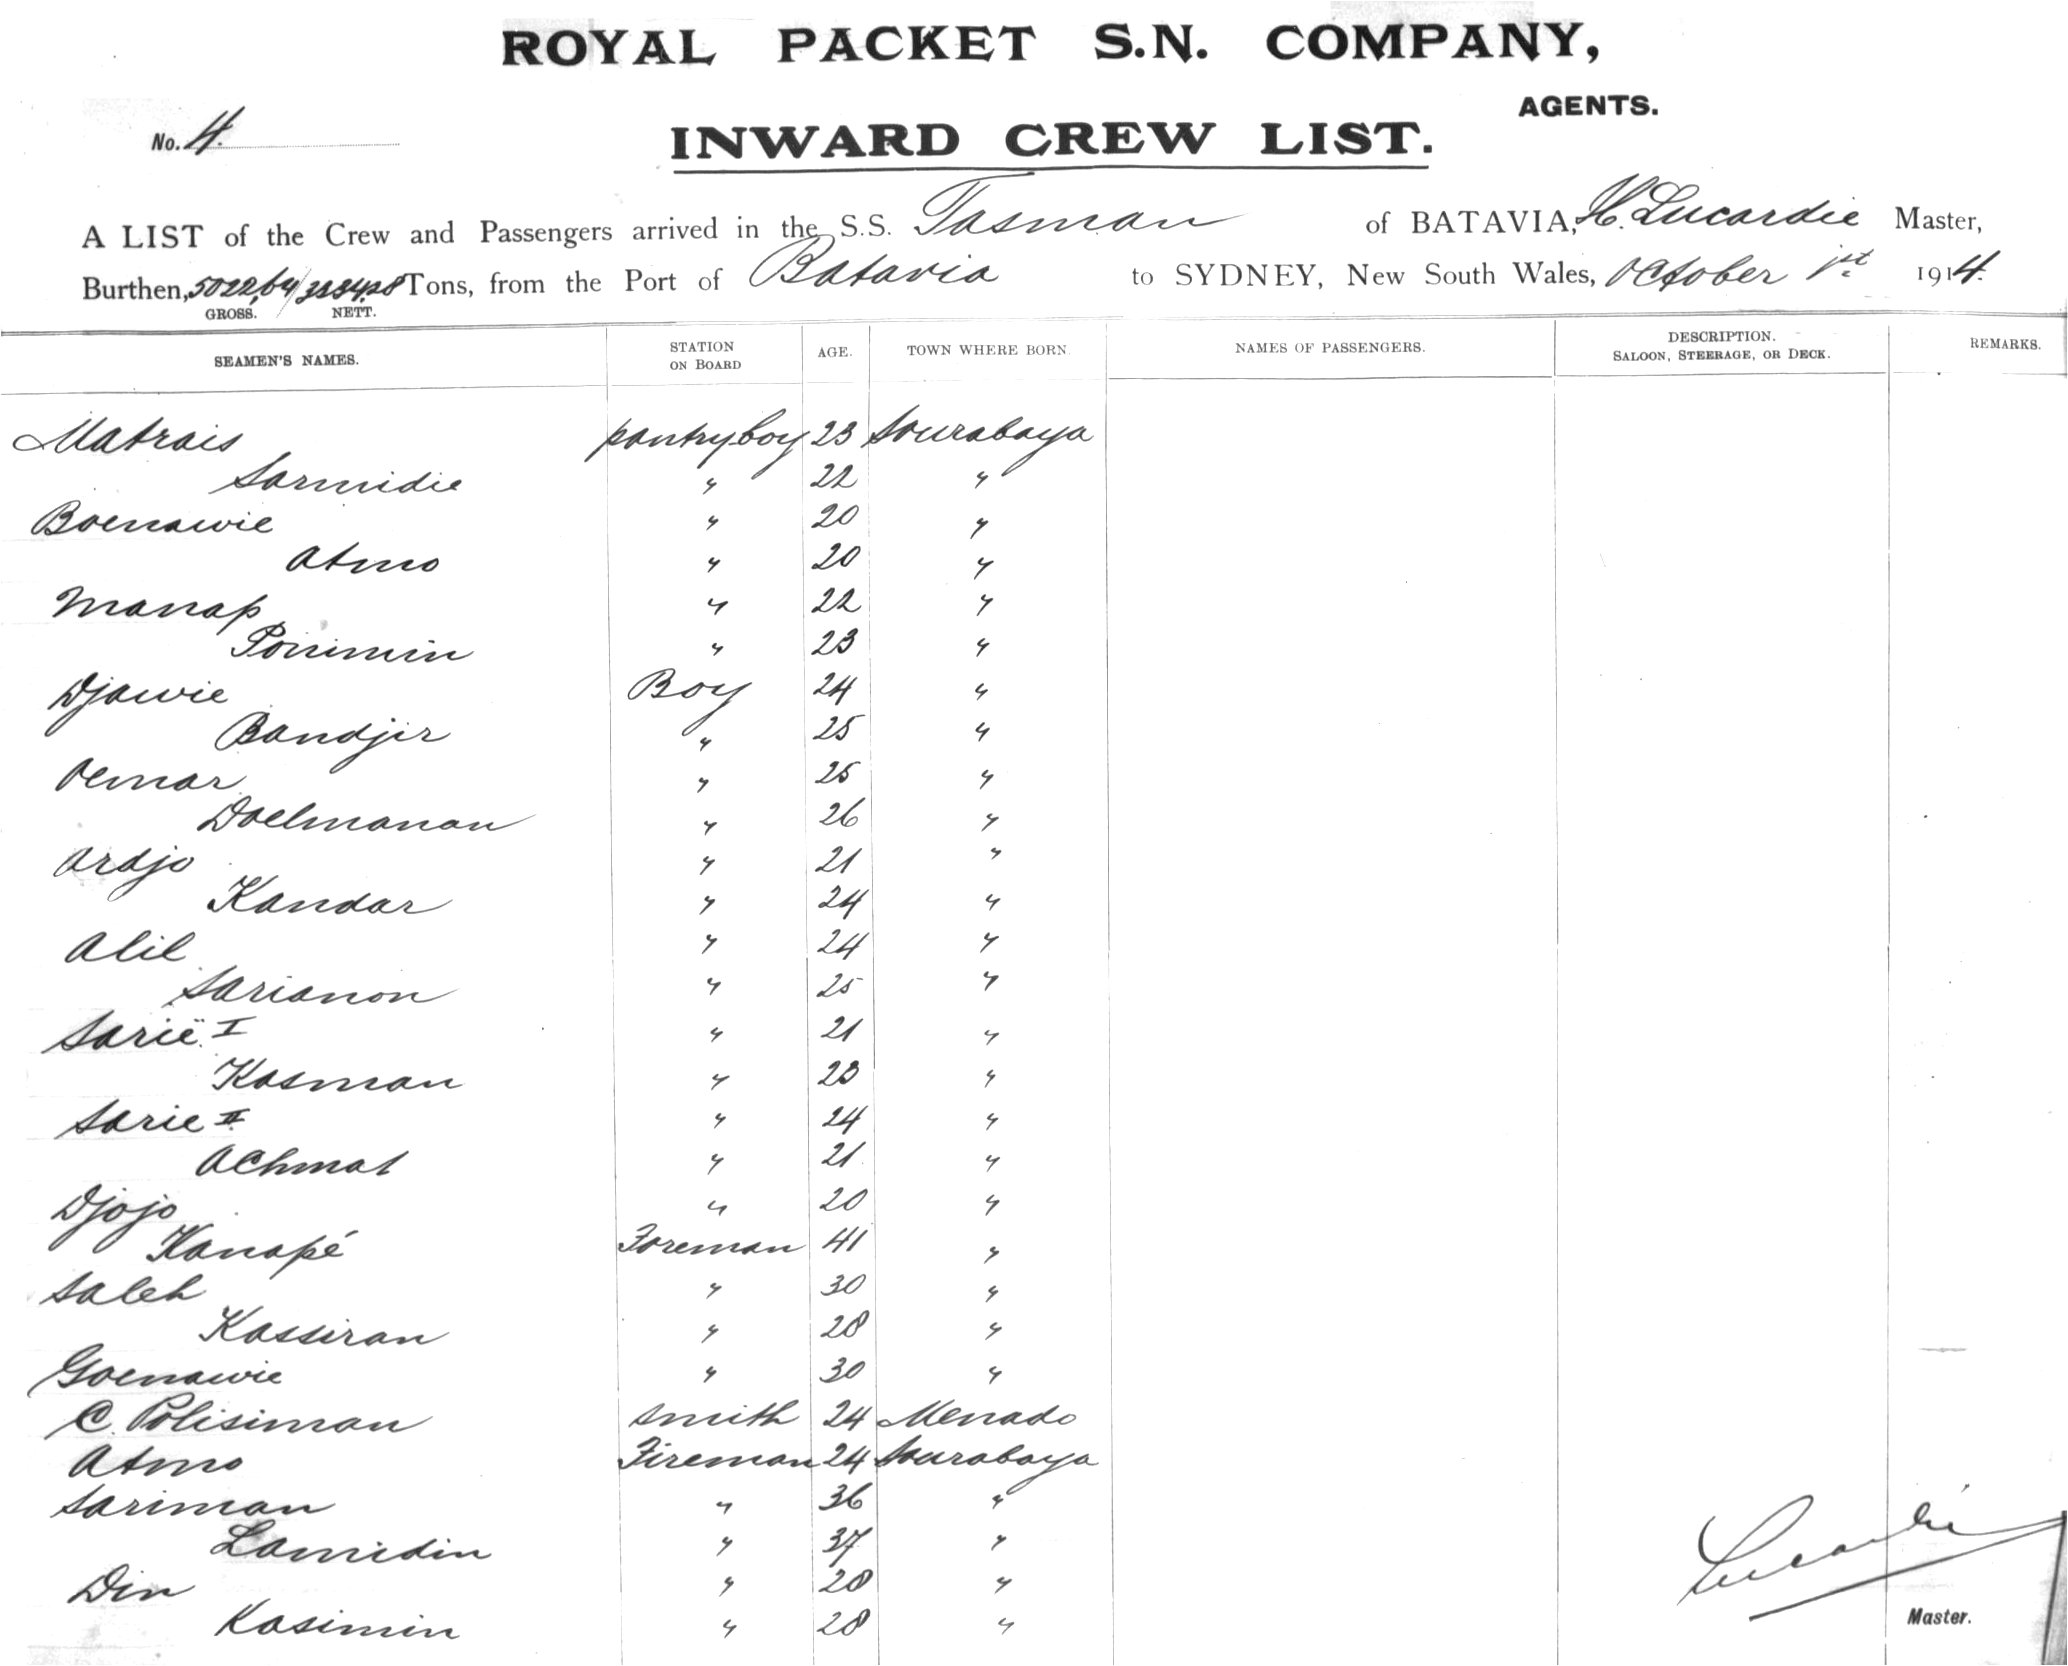 ROYAL PACKET S.N. COMPANY,
AGENTS.
No. 4.
INWARD CREW LIST.
A LIST of the Crew and Passengers arrived in the S.S. Tasman of BATAVIA, H. Lucardie Master,
Burthen, 5022,64/3234,28 Tons, from the Port of Batavia to SYDNEY, New South Wales, October 1st 1914.
GROSS. NETT.
SEAMEN'S NAMES. STATION ON BOARD AGE. TOWN WHERE BORN. NAMES OF PASSENGERS. DESCRIPTION. SALOON, STEERAGE, OR DECK. REMARKS.
Matrais pantryboy 23 Sourabaya
Sarmidie " 22 "
Boenawie " 20 "
Atmo " 20 "
Manap " 22 "
Ponimin " 23 "
Djawie Boy 24 "
Bandjir " 25 "
Oemar " 25 "
Doelmanan " 26 "
Ardjo " 21 "
Kandar " 24 "
Alil " 24 "
Sarianon " 25 "
Sarië I " 21 "
Kasman " 23 "
Sarie II " 24 "
Achmat " 21 "
Djojo " 20 "
Kanapé Foreman 41 "
Saleh " 30 "
Kassiran " 28 "
Goenawie " 30 "
C. Polisiman Smith 24 Menado
Atmo Fireman 24 Sourabaya
Sariman " 36 "
Lamidin " 37 "
Din " 28 "
Kasimin " 28 "
Lucardie
Master.